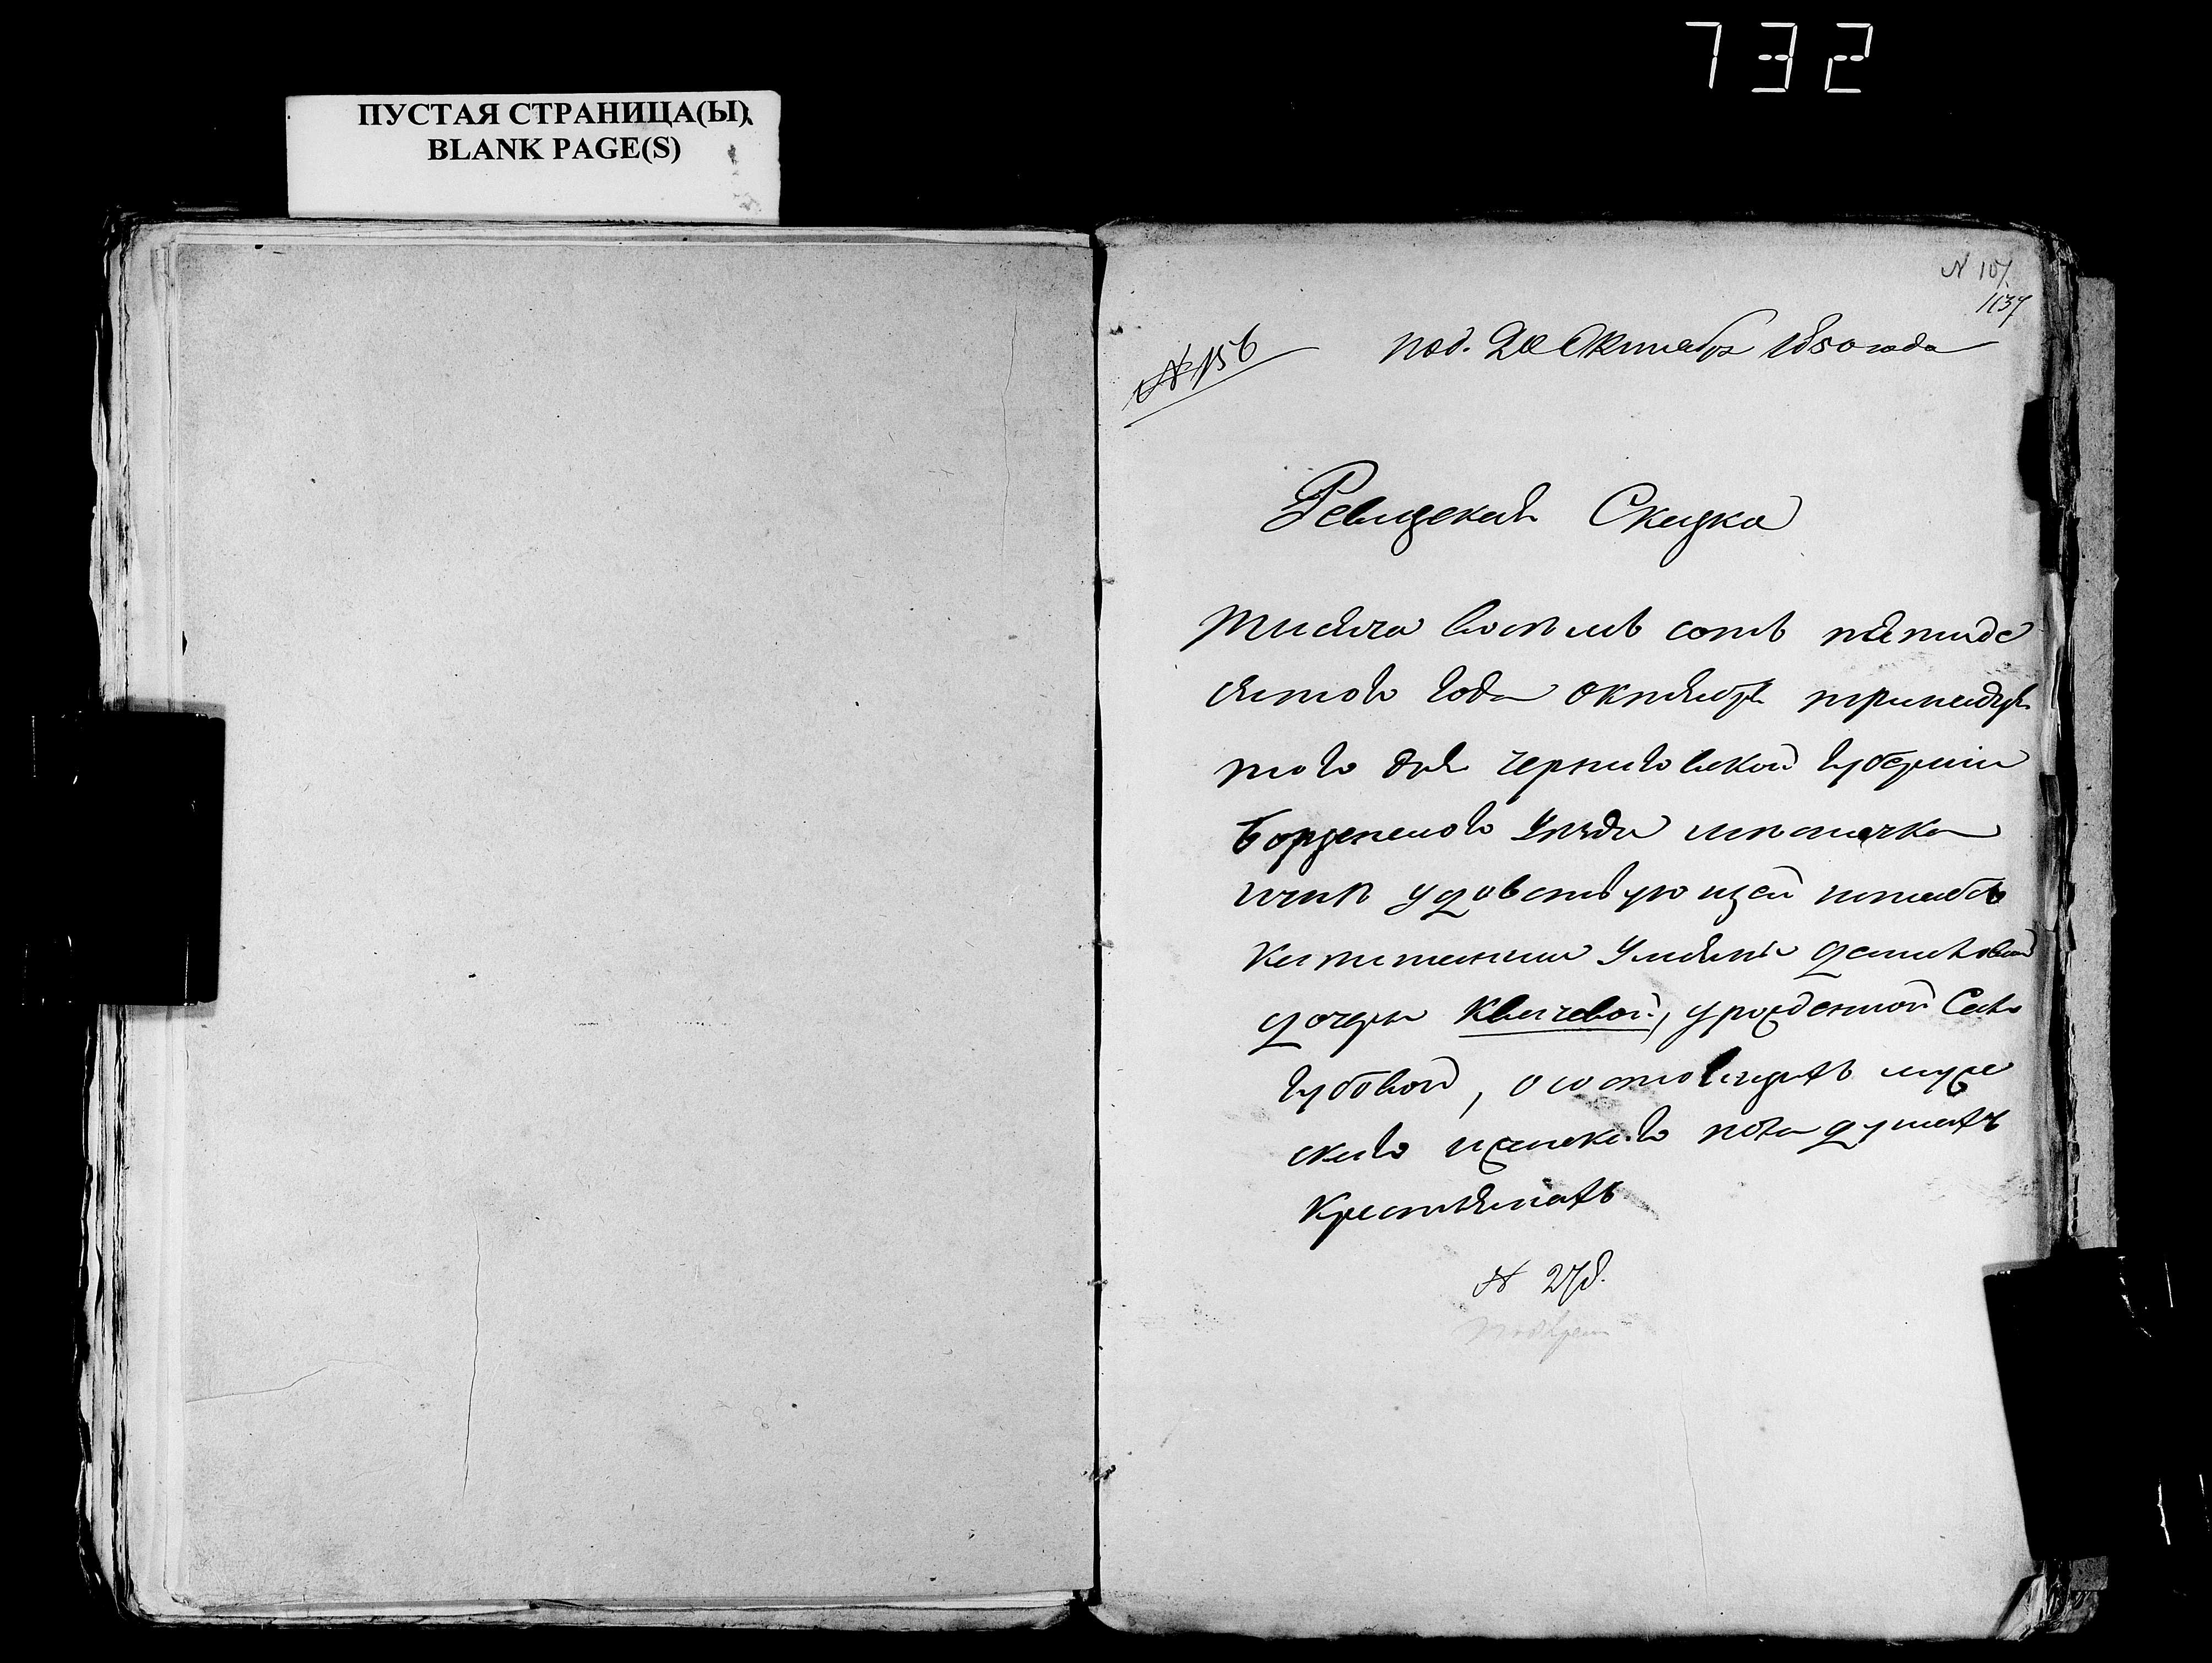 732
ПУСТАЯ СТРАНИЦА(Ы)
BLANK PAGE(S)
N 107
1137
№ 156
под. 20 Октября 1850 года
Ревизская Сказка
тысяча восемь сотъ пятиде
сятого года октября тринадця
того дня Черниговской губерніи
Борзенского Уезда местечка
Ични удовствующей штабсъ
капитанши Ульяни
дочери Квичевой, урожденной Сах
губовой, осостоящихъ муже
скаго иженскаго пола душахъ
Крестьянахъ
№ 278.